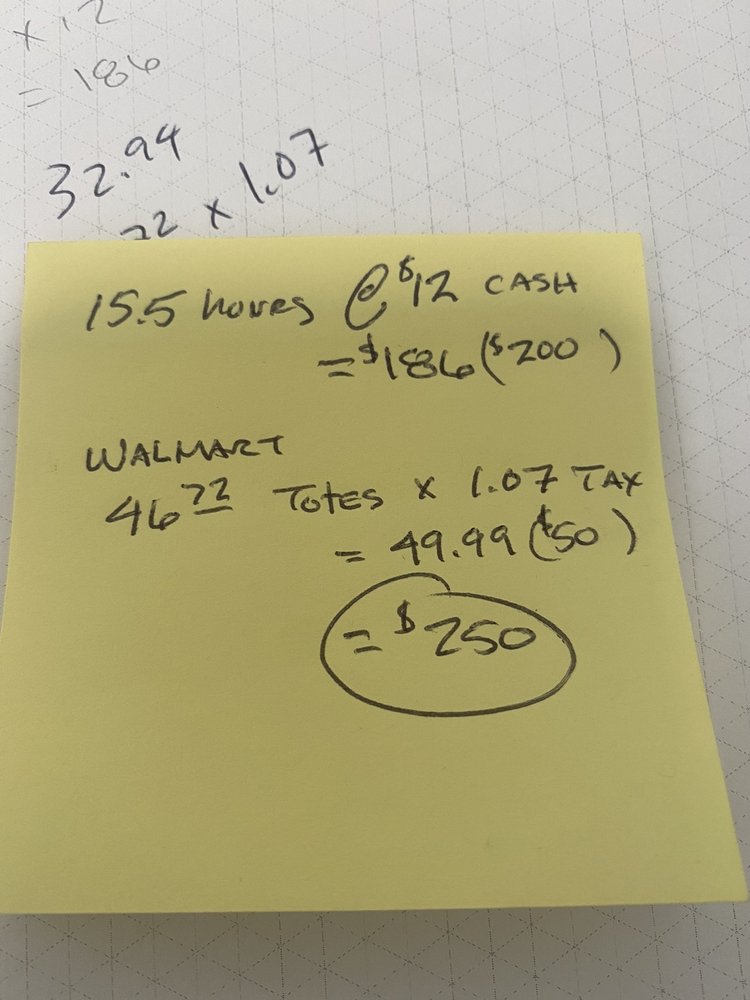 x 12
= 186
32.94
72 x 1.07
15.5 hours @ $12 CASH
= $186 ($200)
WALMART
46 72 Totes x 1.07 TAX
= 49.99 ($50)
= $250